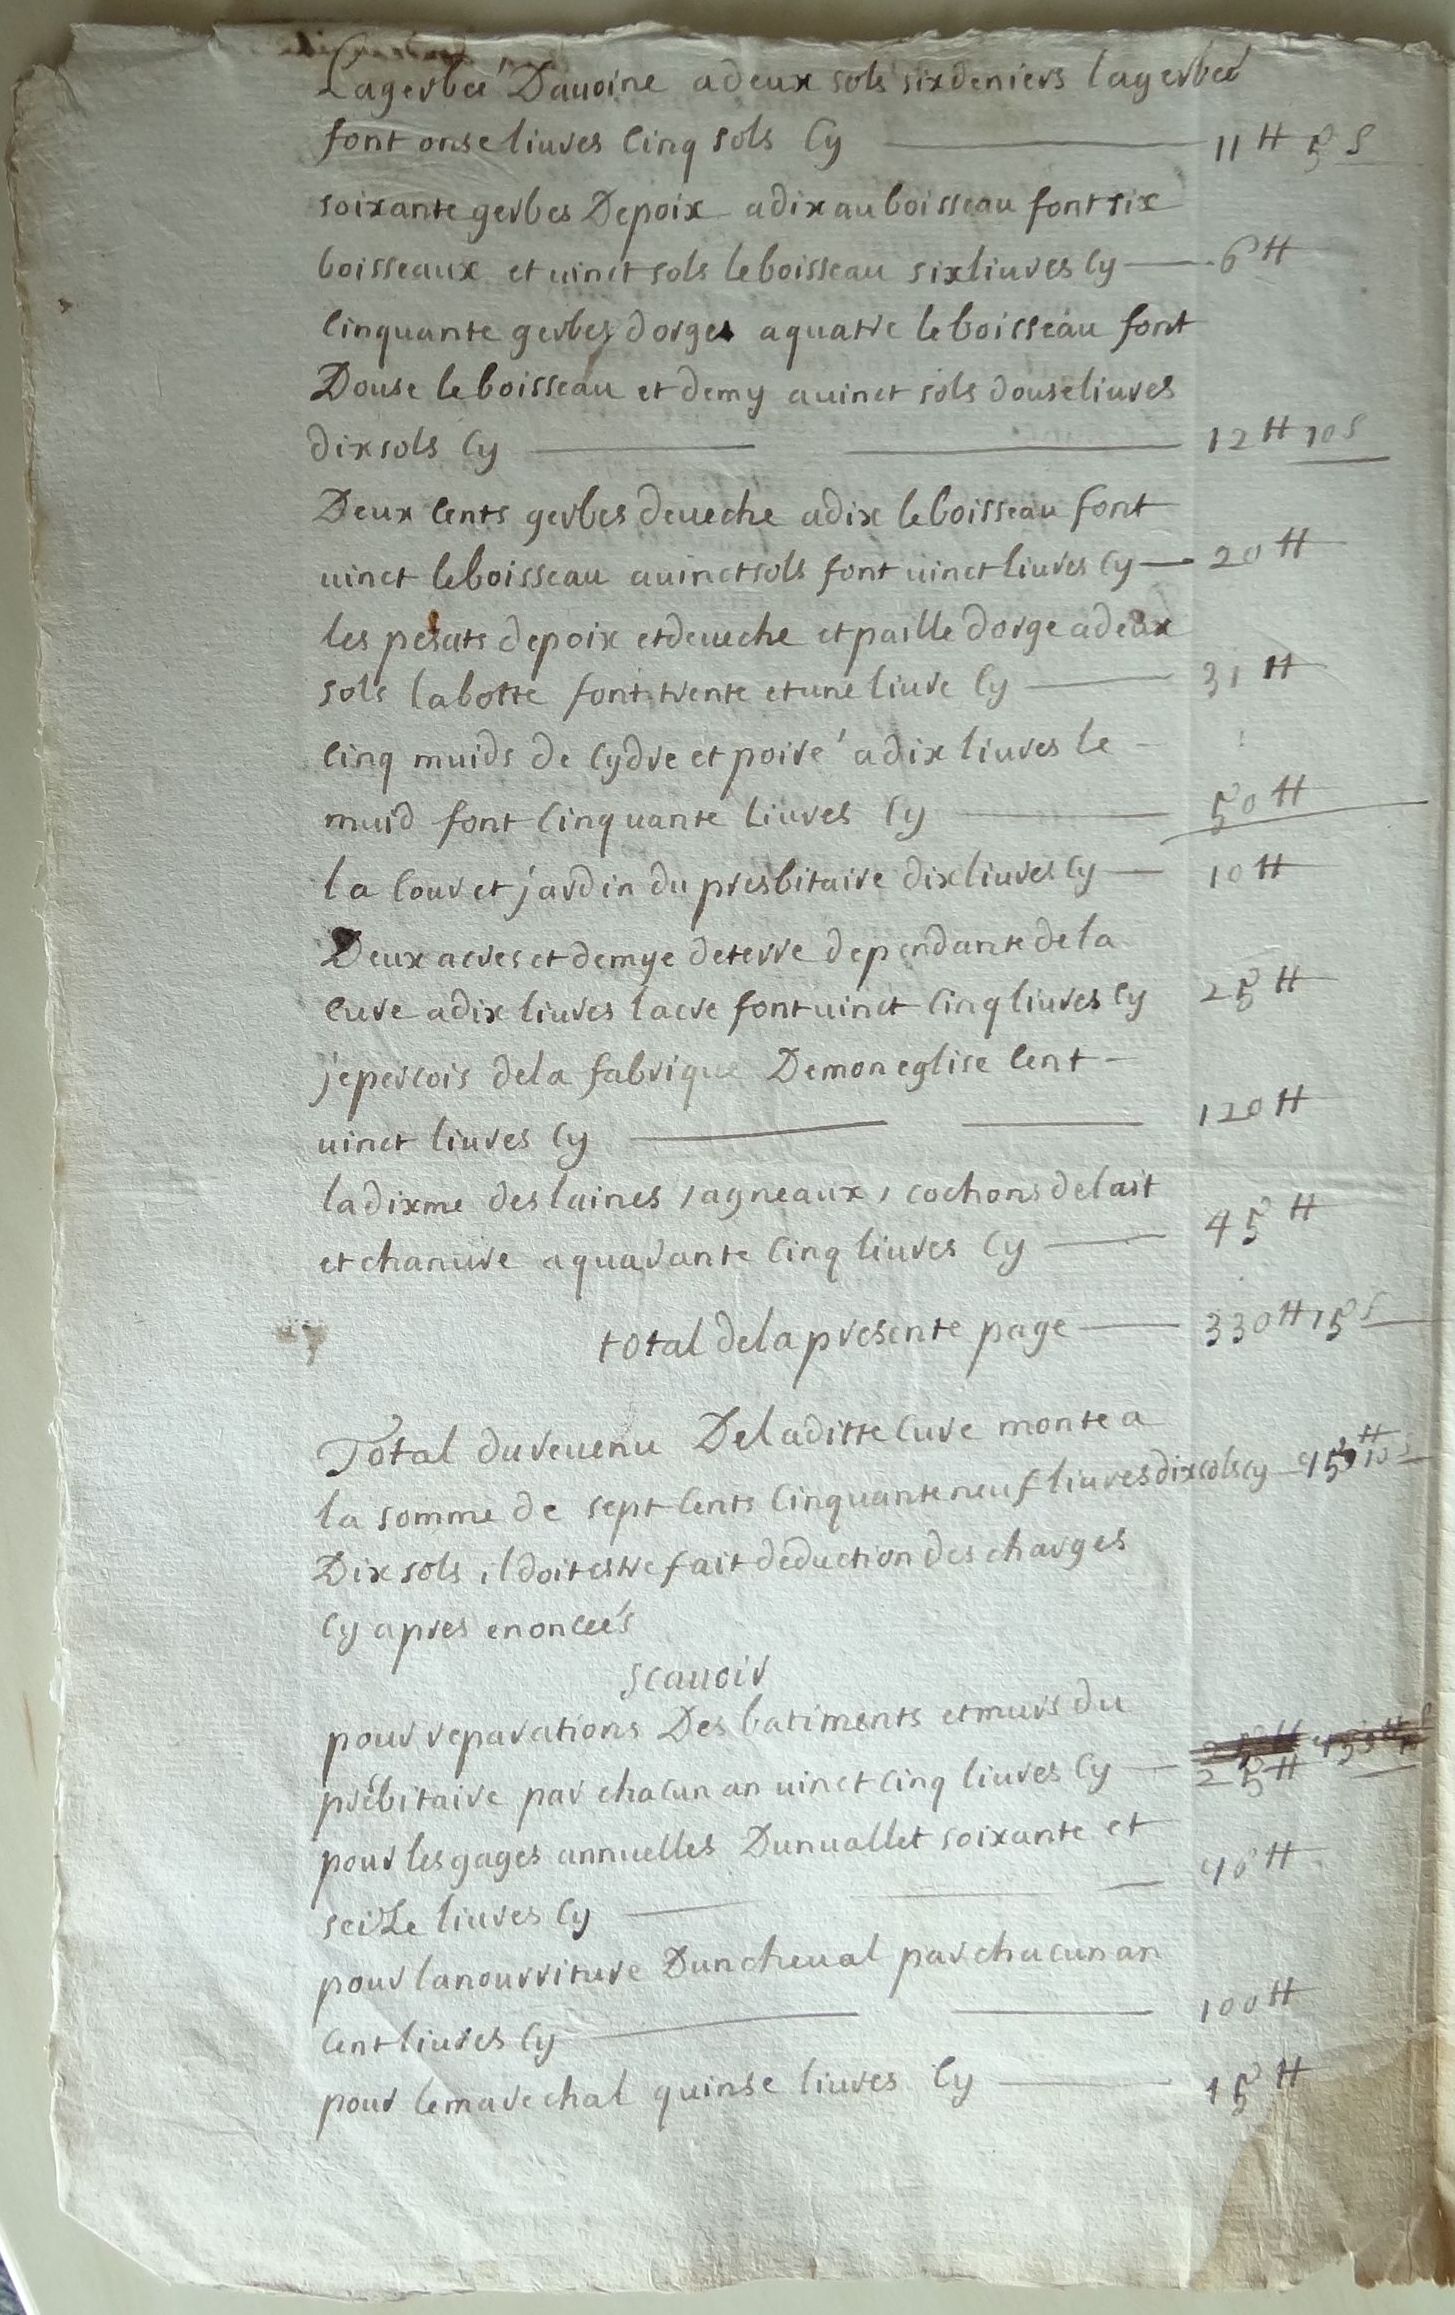 Lagerbeé Dauoine adeux sols six deniers lagerbeé
font onse liures cinq sols cy — 11 ₶ 5 s
soixante gerbes Depoix adix au boisseau font six
boisseaux et uinct sols le boisseau six liures cy — 6 ₶
cinquante gerbes dorges aquatre le boisseau font
Douse le boisseau et demy auinct sols douse liures
dix sols cy — 12 ₶ 10 s
Deux cents gerbes deueche adix le boisseau font
uinct le boisseau auinct sols font uinct liures cy — 20 ₶
les pesats depoix et deueche et paille dorge adeux
sols la botte font trente et une liure cy — 31 ₶
cinq muids de cydre et poiré adix liures le –
muid font cinquante liures cy — 50 ₶
la cour et jardin du presbitaire dix liures cy — 10 ₶
Deux acres et demye deterre dependante de la
cure adix liures lacre font uinct cinq liures cy 25 ₶
je percois de la fabrique Demon eglise cent –
uinct liures cy — 120 ₶
la dixme des laines, agneaux, cochons de lait
et chanure aquarante cinq liures cy — 45 ₶
total de la presente page — 330 ₶ 15 s
Total du reuenu De laditte cure monte a
la somme de sept cents cinquante neuf liures dix sols cy 759 ₶ 10 s
Dix sols, il doit estre fait deduction des charges
cy apres enonceés
scauoir
pour reparations Des batiments et murs du
prébitaire par chacun an uinct cinq liures cy — 25 ₶
pour les gages annuelles Dun uallet soixante et
seize liures cy — 76 ₶
pour la nourriture Dun cheual par chacun an
cent liures cy — 100 ₶
pour le marechal quinse liures cy — 15 ₶